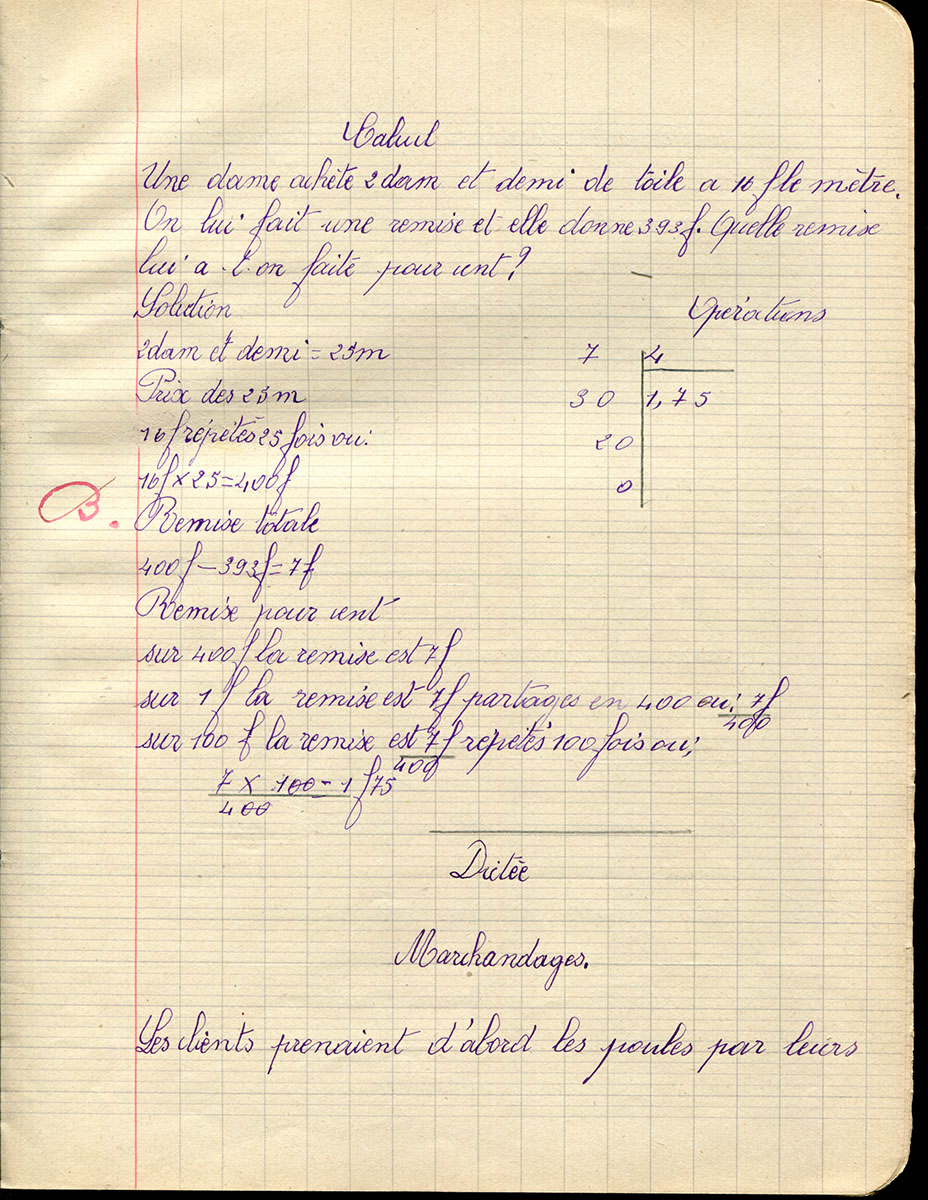 Calcul
Une dame achète 2 dam et demi de toile a 16 f le mètre.
On lui fait une remise et elle donne 393 f. Quelle remise
lui a-t-on faite pour cent?
Solution
Opérations
2 dam et demi = 25 m
7 4
Prix des 25 m
30 1,75
16 f répétés 25 fois ou:
20
16 f × 25 = 400 f
0
B.
Remise totale
400 f – 393 f = 7 f
Remise pour cent
sur 400 f la remise est 7 f
sur 1 f la remise est 7 f partagés en 400 ou; 7 f
400
sur 100 f la remise est 7 f répétés 100 fois ou;
400
7 × 100 = 1 f 75
400
Dictée
Marchandages.
Les clients prenaient d'abord les poules par leurs